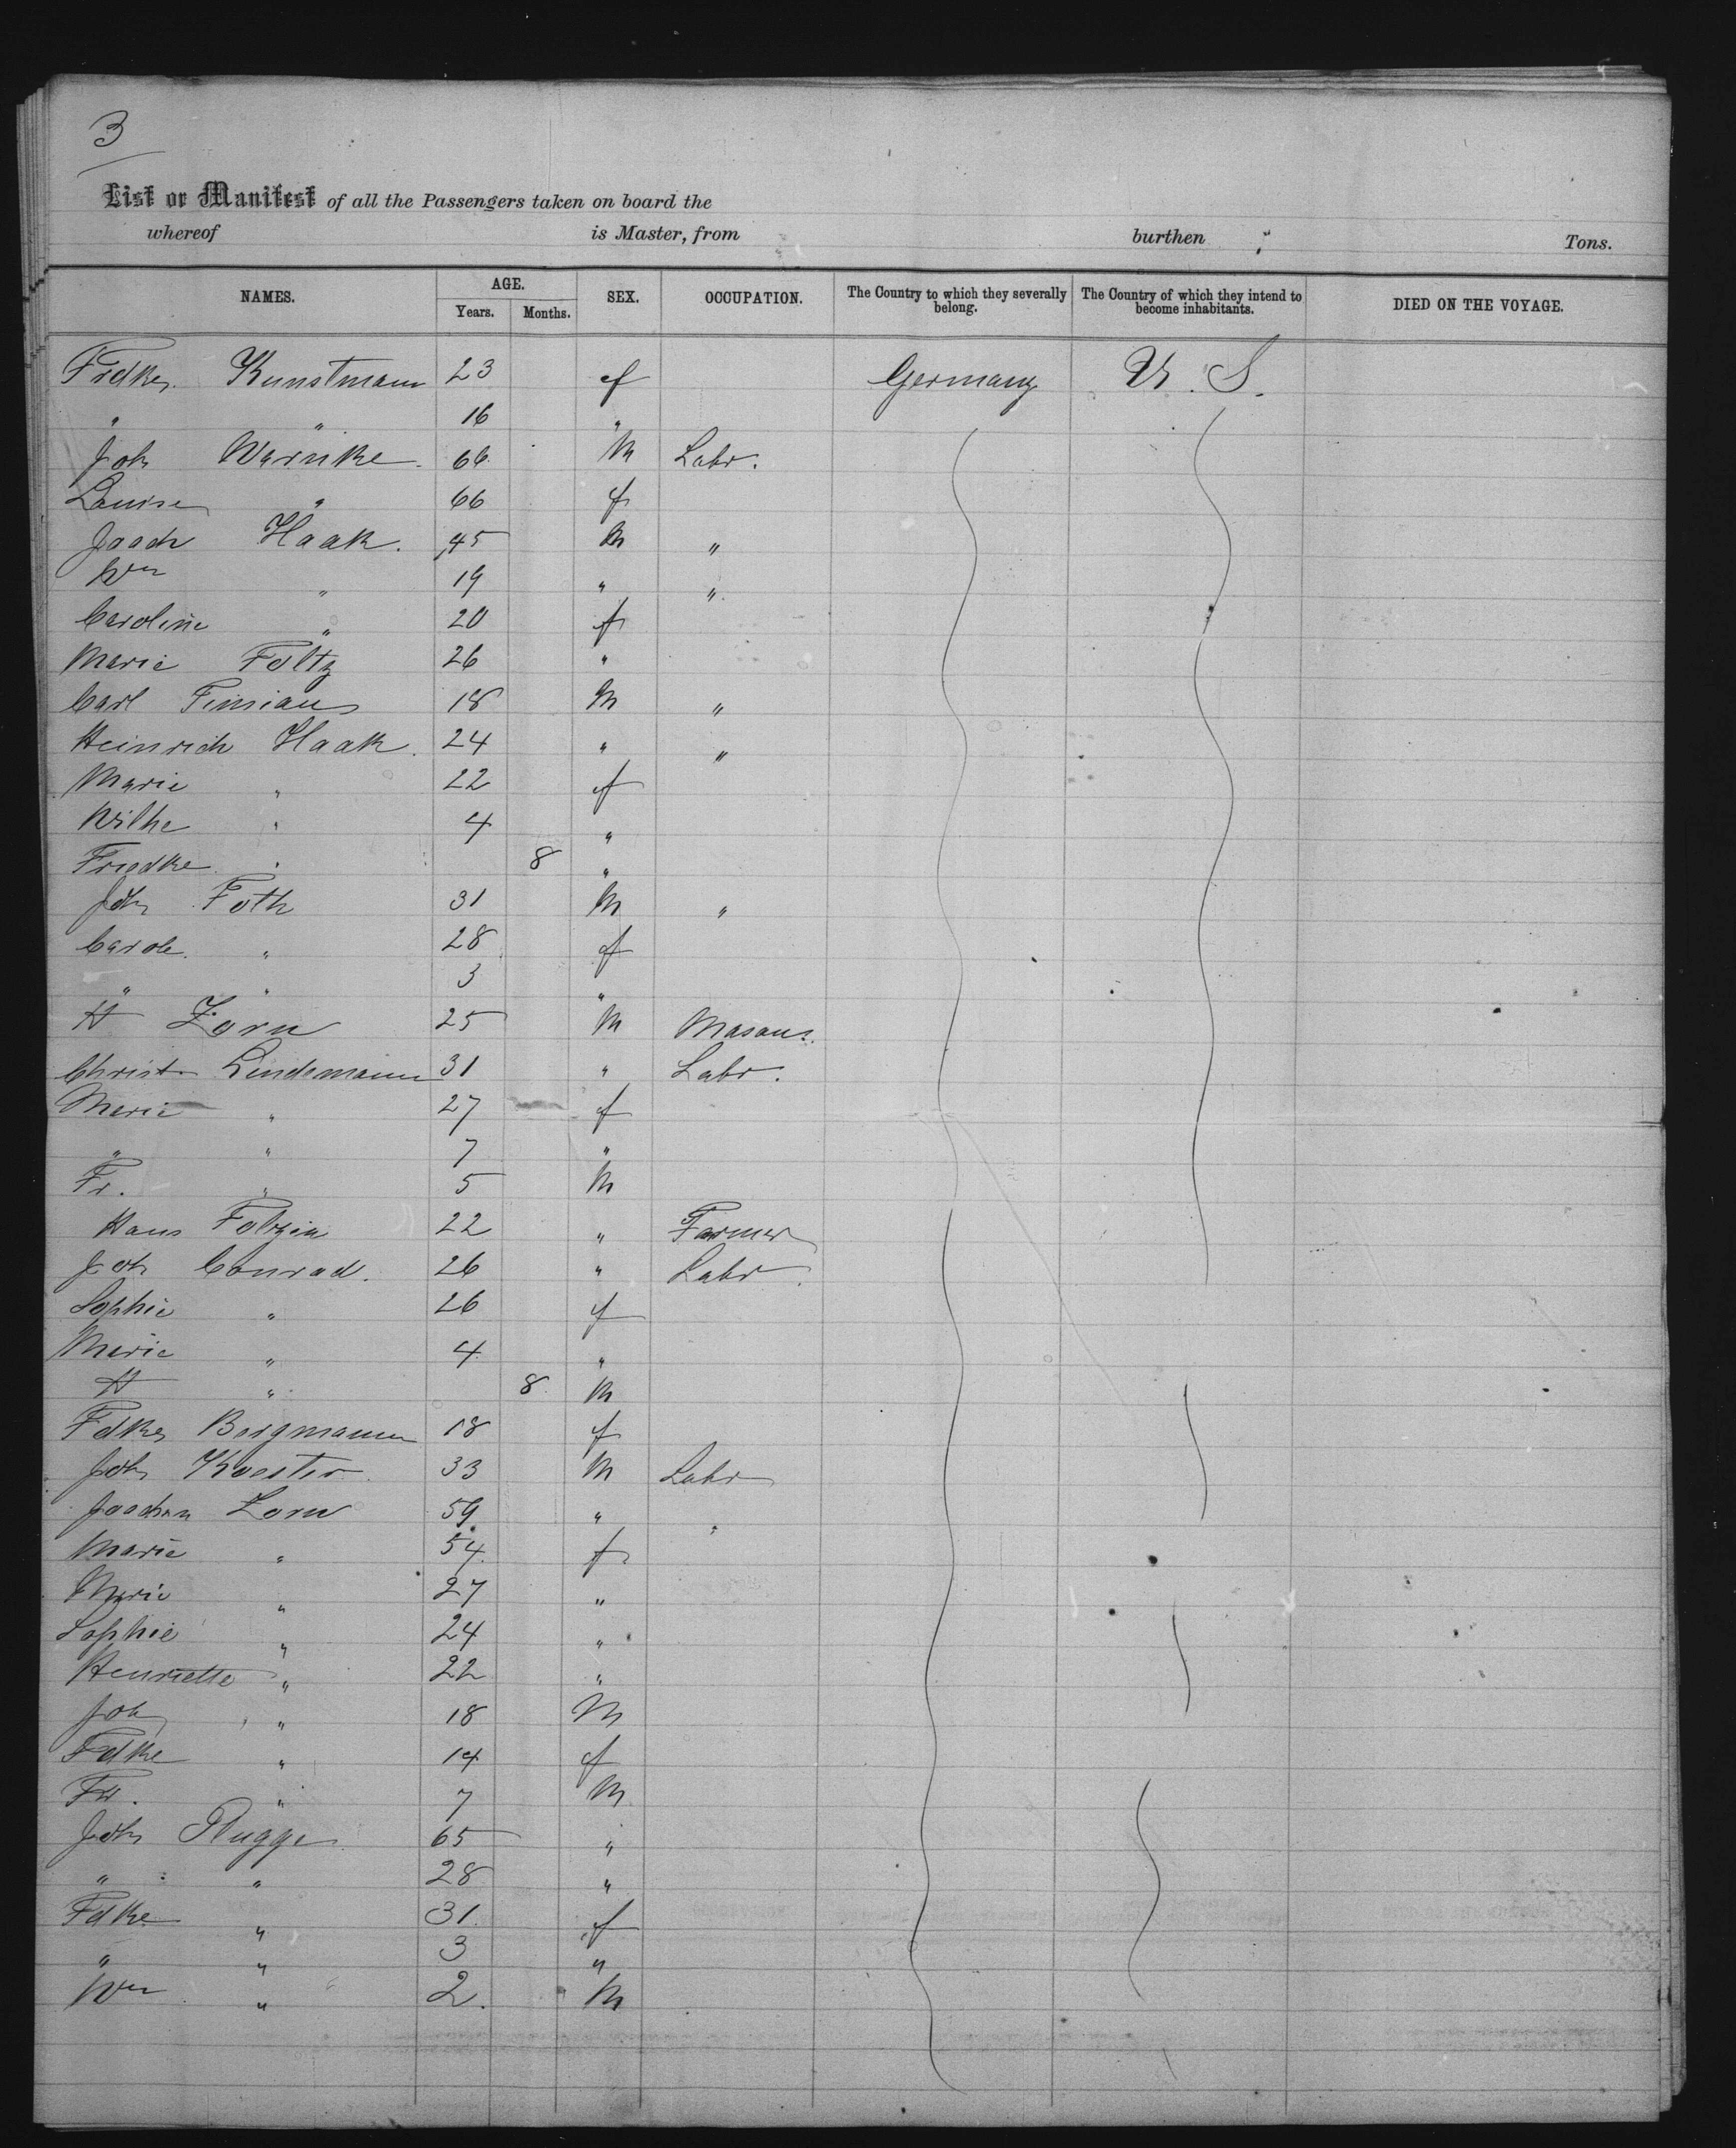 3
List or Manifest of all the Passengers taken on board the
whereof is Master, from burthen Tons.
NAMES. AGE. Years. Months. SEX. OCCUPATION. The Country to which they severally belong. The Country of which they intend to become inhabitants. DIED ON THE VOYAGE.
Fredke Kunstmann 23 f Germany U. S.
" " 16 "
Joh Warnke 66 M Labr.
Louise " 66 f
Joach Haak. 45 M "
Wm " 19 " "
Caroline " 20 f
Marie Foltz 26 "
Carl 18 M "
Heinrich Haak 24 " "
Marie " 22 f
Wilhe " 4 "
Friedke " 8 "
Joh Foth 31 M "
Carole. " 28 f
" " 3 "
H Zorn 25 M Mason.
Christ Lindemann 31 " Labr.
Marie " 27 f
" " 7 "
Fr. " 5 M
Hans Foltzin 22 " Farmer
Joh Conrad. 26 " Labr.
Sophie " 26 f
Marie " 4 "
H " 8 M
Fdke Bergmann 18 f
Joh Koester 33 M Labr
Joachim Zorn 59 " "
Marie " 54 f
Marie " 27 "
Sophie " 24 "
Henriette " 22 "
Joh " 18 M
Fdke " 14 f
Fr. " 7 M
Joh Plugge 65 "
" " 28 "
Fdke " 31 f
" " 3 "
Wm " 2. M